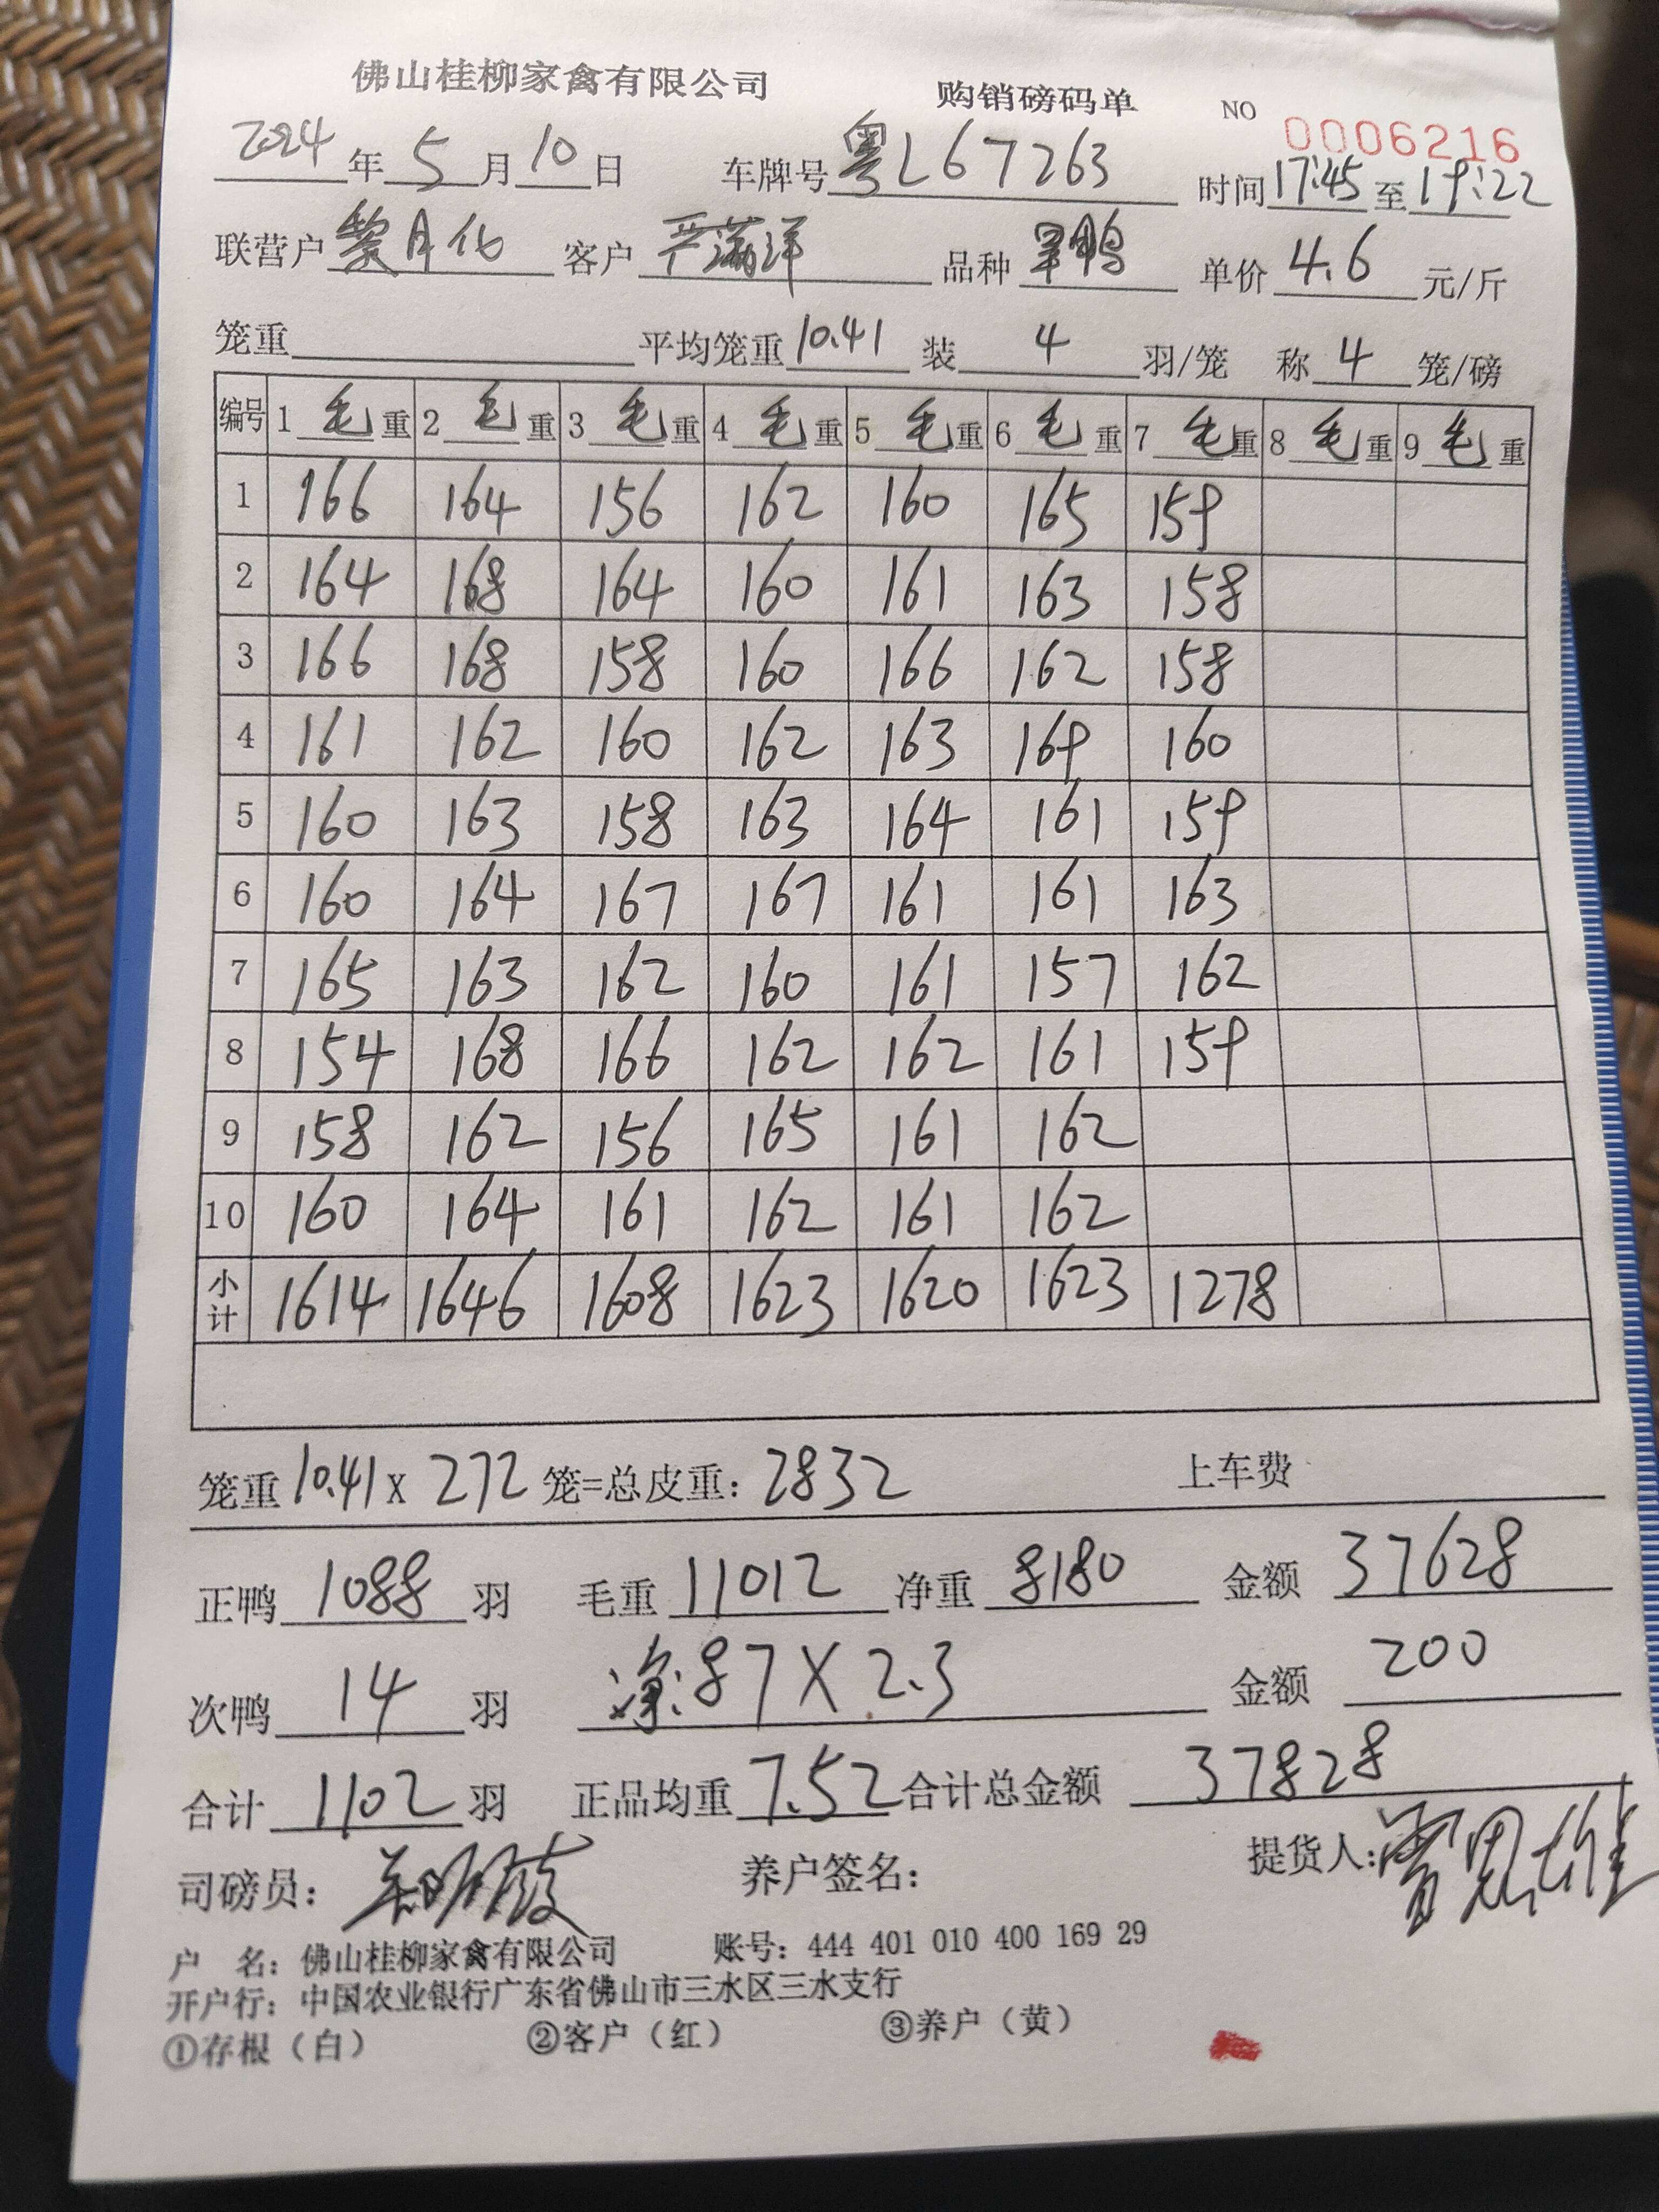 佛山桂柳家禽有限公司 购销磅码单 NO 0006216
2024年5月10日 车牌号粤L67263 时间17:45至19:22
联营户黎月化 客户严满洋 品种旱鸭 单价4.6元/斤
笼重 平均笼重10.41 装4羽/笼 称4笼/磅
编号 1毛重 2毛重 3毛重 4毛重 5毛重 6毛重 7毛重 8毛重 9毛重
1 166 164 156 162 160 165 159
2 164 168 164 160 161 163 158
3 166 168 158 160 166 162 158
4 161 162 160 162 163 169 160
5 160 163 158 163 164 161 159
6 160 164 167 167 161 161 163
7 165 163 162 160 161 157 162
8 154 168 166 162 162 161 159
9 158 162 156 165 161 162
10 160 164 161 162 161 162
小计 1614 1646 1608 1623 1620 1623 1278
笼重10.41x272笼=总皮重：2832 上车费
正鸭1088羽 毛重11012 净重8180 金额37628
次鸭14羽 净:87X2.3 金额200
合计1102羽 正品均重7.52合计总金额37828
司磅员： 养户签名： 提货人：
户 名：佛山桂柳家禽有限公司 账号：444 401 010 400 169 29
开户行：中国农业银行广东省佛山市三水区三水支行
①存根（白） ②客户（红） ③养户（黄）